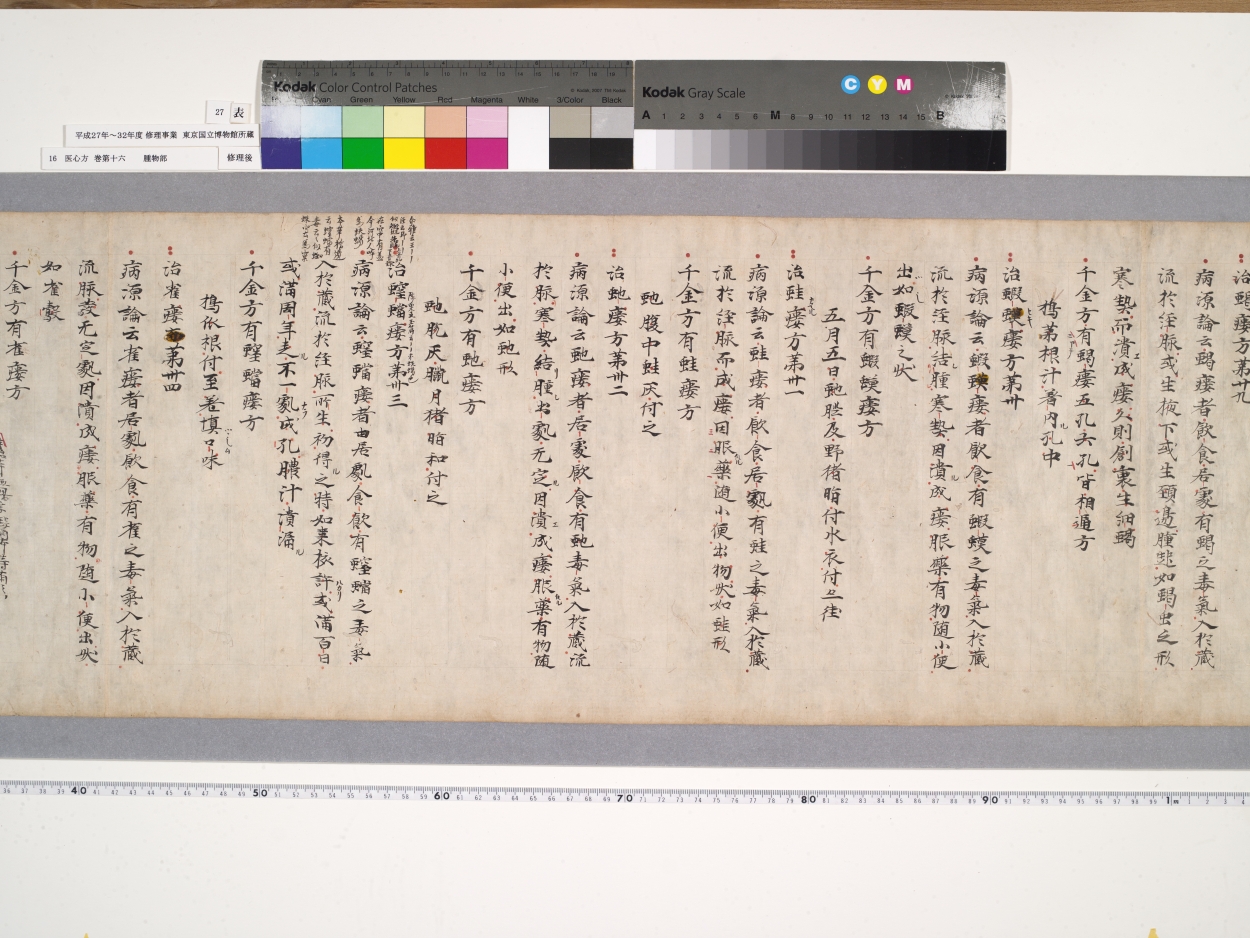 Kodak Color Control Patches
© Kodak, 2007 TM Kodak
Cyan Green Yellow Red Magenta White 3/Color Black
Kodak Gray Scale
C Y M
A 1 2 3 4 5 6 M 8 9 10 11 12 13 14 15 B
27 表
平成27年~32年度 修理事業 東京国立博物館所蔵
16 医心方 巻第十六 腫物部 修理後
治蝎瘻方第廿九
病源論云蝎瘻者飲食居處有蝎之毒氣入於藏
流於経脉或生掖下或生頸邊腫起如蝎虫之形
寒熱而潰成瘻久則創裏生細蝎
千金方有蝎瘻五孔六孔皆相通方
搗茅根汁着内孔中
治蝦蟆瘻方第卅
病源論云蝦蟆瘻者飲食有蝦蟆之毒氣入於藏
流於淫脉結腫寒熱因潰成瘻服藥有物随小便
出如蝦蟆之狀
千金方有蝦蟆瘻方
五月五日虵
野猪脂付水衣付之佳
治蛙瘻方第卅一
病源論云蛙瘻者飲食居處有蛙之毒氣入於藏
流於淫脉而成瘻因服藥随小便出物狀如蛙形
千金方有蛙瘻方
虵腹中蛙灰付之
治虵瘻方第卅二
病源論云虵瘻者居處飲食有虵毒氣入於藏流
於脉寒熱結腫出處无定因潰成瘻服藥有物随
小便出如虵形
千金方有虵瘻方
虵虵灰臘月猪脂和付之
治螲蟷瘻方第卅三
病源論云螲蟷瘻者由居處食飲有螲蟷之毒氣
入於藏流於経脉所生初得之時如棗核許或滿百日
或滿周年走不一處成孔膿汁潰涌
千金方有螲蟷瘻方
搗
根付至着慎口味
治雀瘻方第卅四
病源論云雀瘻者居處飲食有雀之毒氣入於藏
流脉發无定處因潰成瘻服藥有物随小便出狀
如雀鷇
千金方有雀瘻方
40 50 60 70 80 90 1m